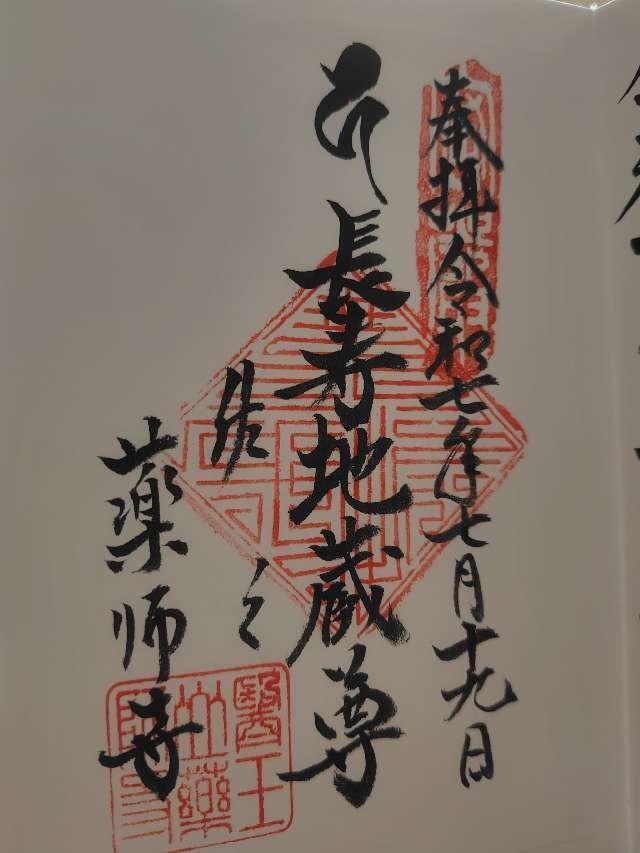 奉拝 令和七年七月十九日
長寿地蔵尊
佐々
薬師寺
醫王
薬